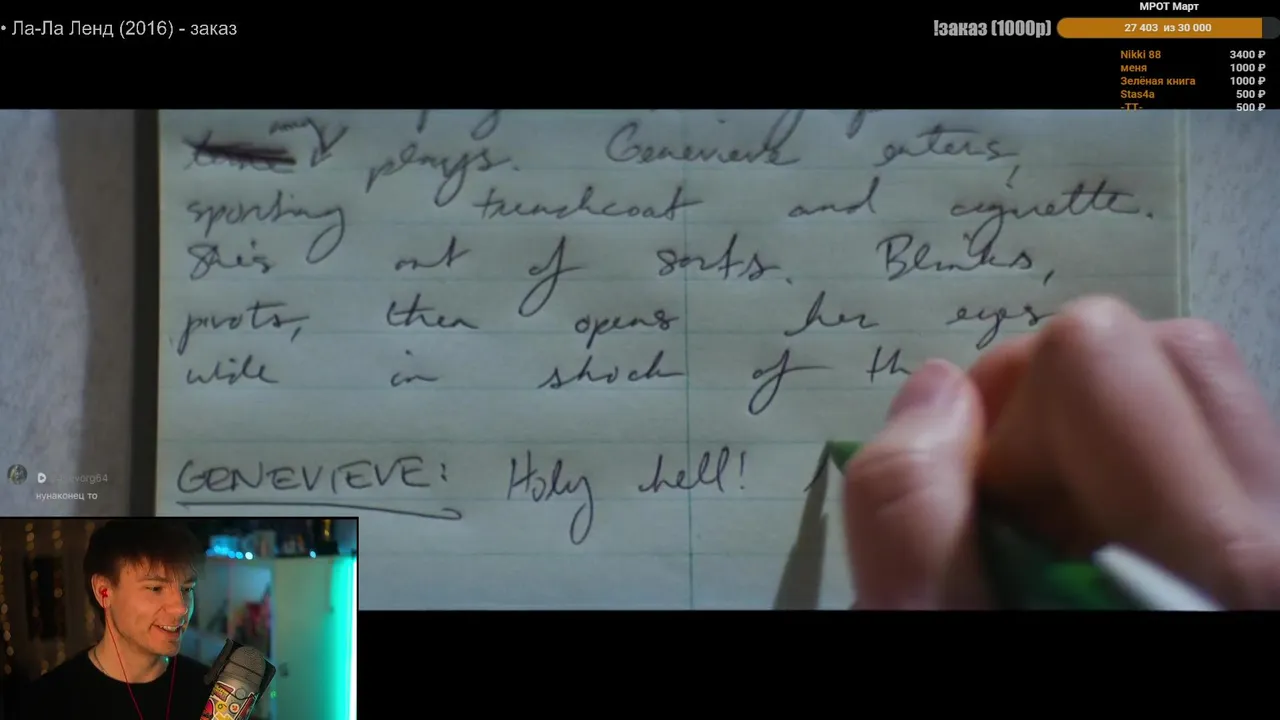 • Ла-Ла Ленд (2016) - заказ
!заказ (1000р)
МРОТ Март
27 403 из 30 000
Nikki 88 3400 ₽
меня 1000 ₽
Зелёная книга 1000 ₽
Stas4a 500 ₽
-ТТ- 500 ₽
plays. Genevieve enters,
sporting trenchcoat and cigarette.
She's out of sorts. Blinks,
pivots, then opens her eyes
wide in shock of th
GENEVIEVE: Holy hell!
нунаконец то